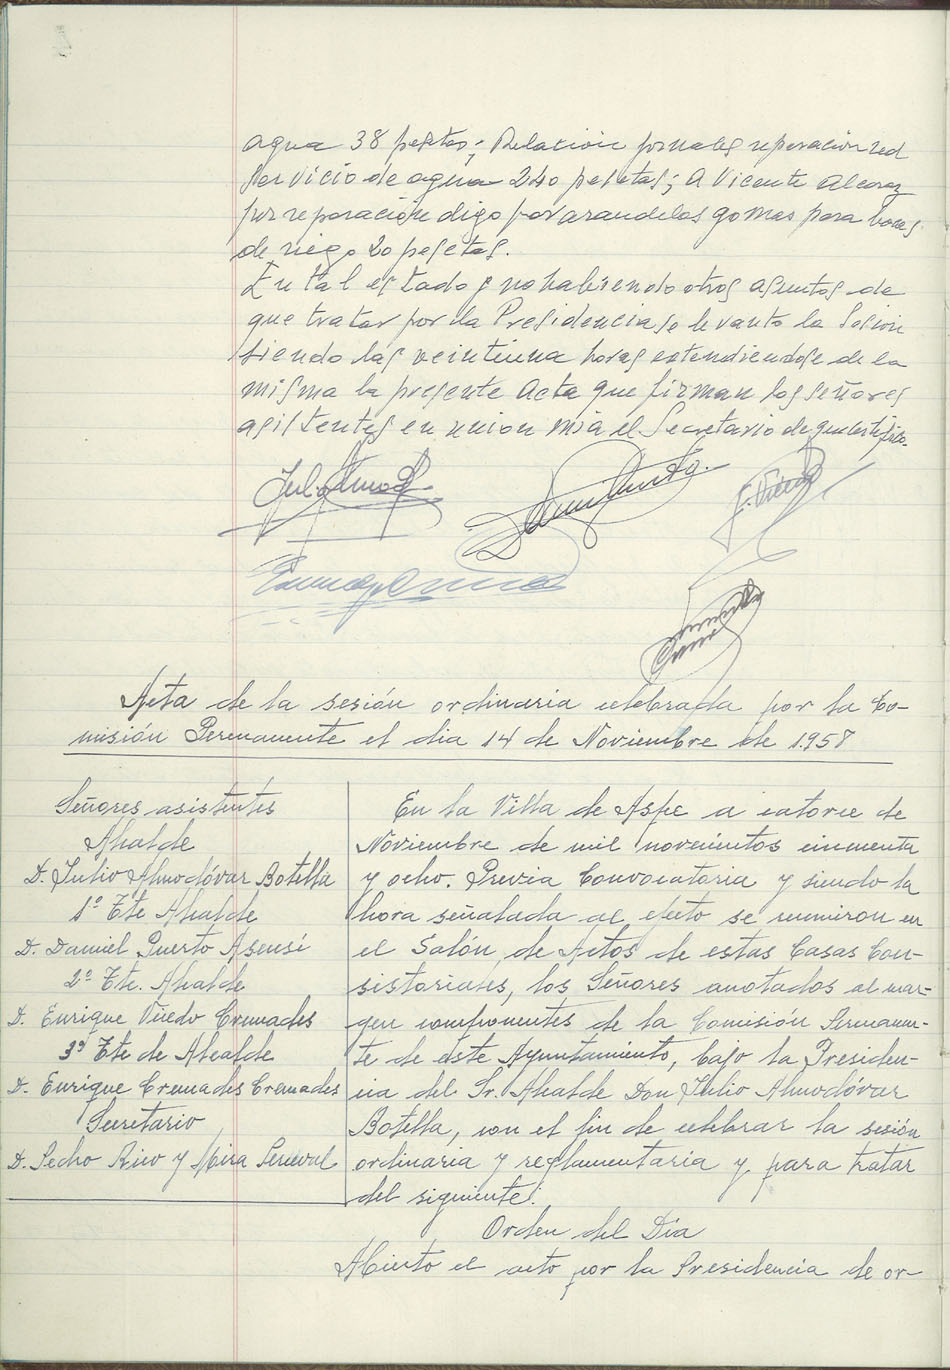 agua 38 pesetas; Relación jornales reparación red
servicio de agua 240 pesetas; a Vicente Alcaraz
por reparación digo por arandelas gomas para bocas
de riego 20 pesetas.
En tal estado y no habiendo otros asuntos de
que tratar por la Presidencia se levanto la Sesion
siendo las veintiuna horas extendiendose de la
misma la presente Acta que firman los señores
asistentes en union mia el Secretario de que certifico.
Acta de la sesión ordinaria celebrada por la Co-
misión Permanente el dia 14 de Noviembre de 1.958
Señores asistentes
Alcalde
D. Julio Almodóvar Botella
1º Tte Alcalde
D. Daniel Puerto Asensi
2º Tte. Alcalde
D. Enrique Viñedo Cremades
3º Tte de Alcalde
D. Enrique Cremades Cremades
Secretario
D. Pedro Rico y Mira Perceval
En la Villa de Aspe a catorce de
Noviembre de mil novecientos cincuenta
y ocho. Previa Convocatoria y siendo la
hora señalada al efecto se reunieron en
el Salón de Actos de estas Casas Con-
sistoriales, los Señores anotados al mar-
gen componentes de la Comisión Permanen-
te de este Ayuntamiento, bajo la Presiden-
cia del Sr. Alcalde Don Julio Almodóvar
Botella, con el fin de celebrar la sesión
ordinaria y reglamentaria y para tratar
del siguiente:
Orden del Dia
Abierto el acto por la Presidencia de or-